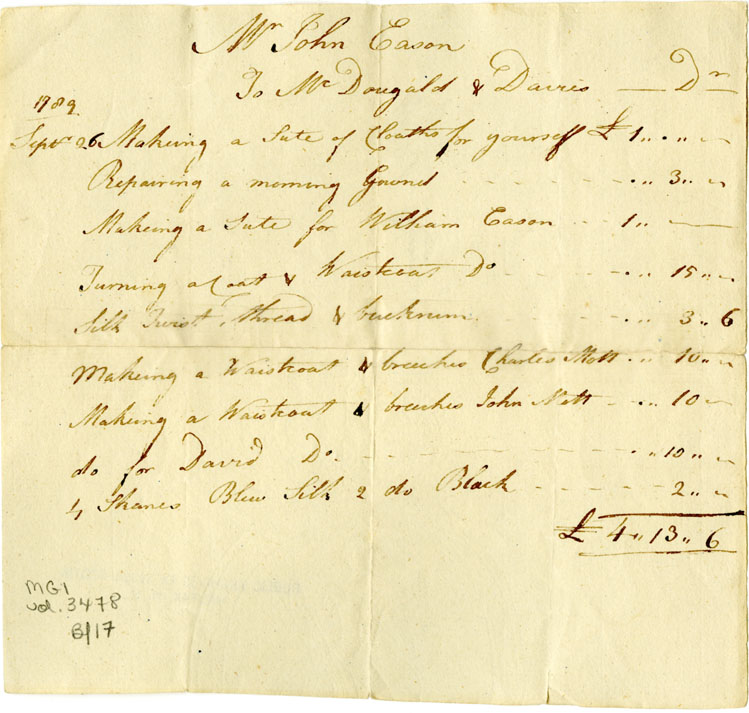 Mr John Eason
To McDougald & Davies — Dr
1789
Septr 26 Makeing a Sute of Cloaths for yourself £ 1 ,, . ,, ~
Repairing a morning Gownd - - - - . ,, 3 ,, ~
Makeing a Sute for William Eason - - 1 ,, —
Turning a Coat & Waistcoat Do - - - - . ,, 15 ,, ~
Silk Twist, Thread & buckrum - - - - . ,, 3 ,, 6
Makeing a Waistcoat & breeches Charles Mott . ,, 10 ,, ~
Makeing a Waistcoat & breeches John Mott - . ,, 10 ~
do for David Do. - - - - . ,, 10 ,, ~
4 Skanes Blew Silk 2 do Black - - - - 2 ,, ~
£ 4 ,, 13 ,, 6
MG1
vol. 3478
B/17